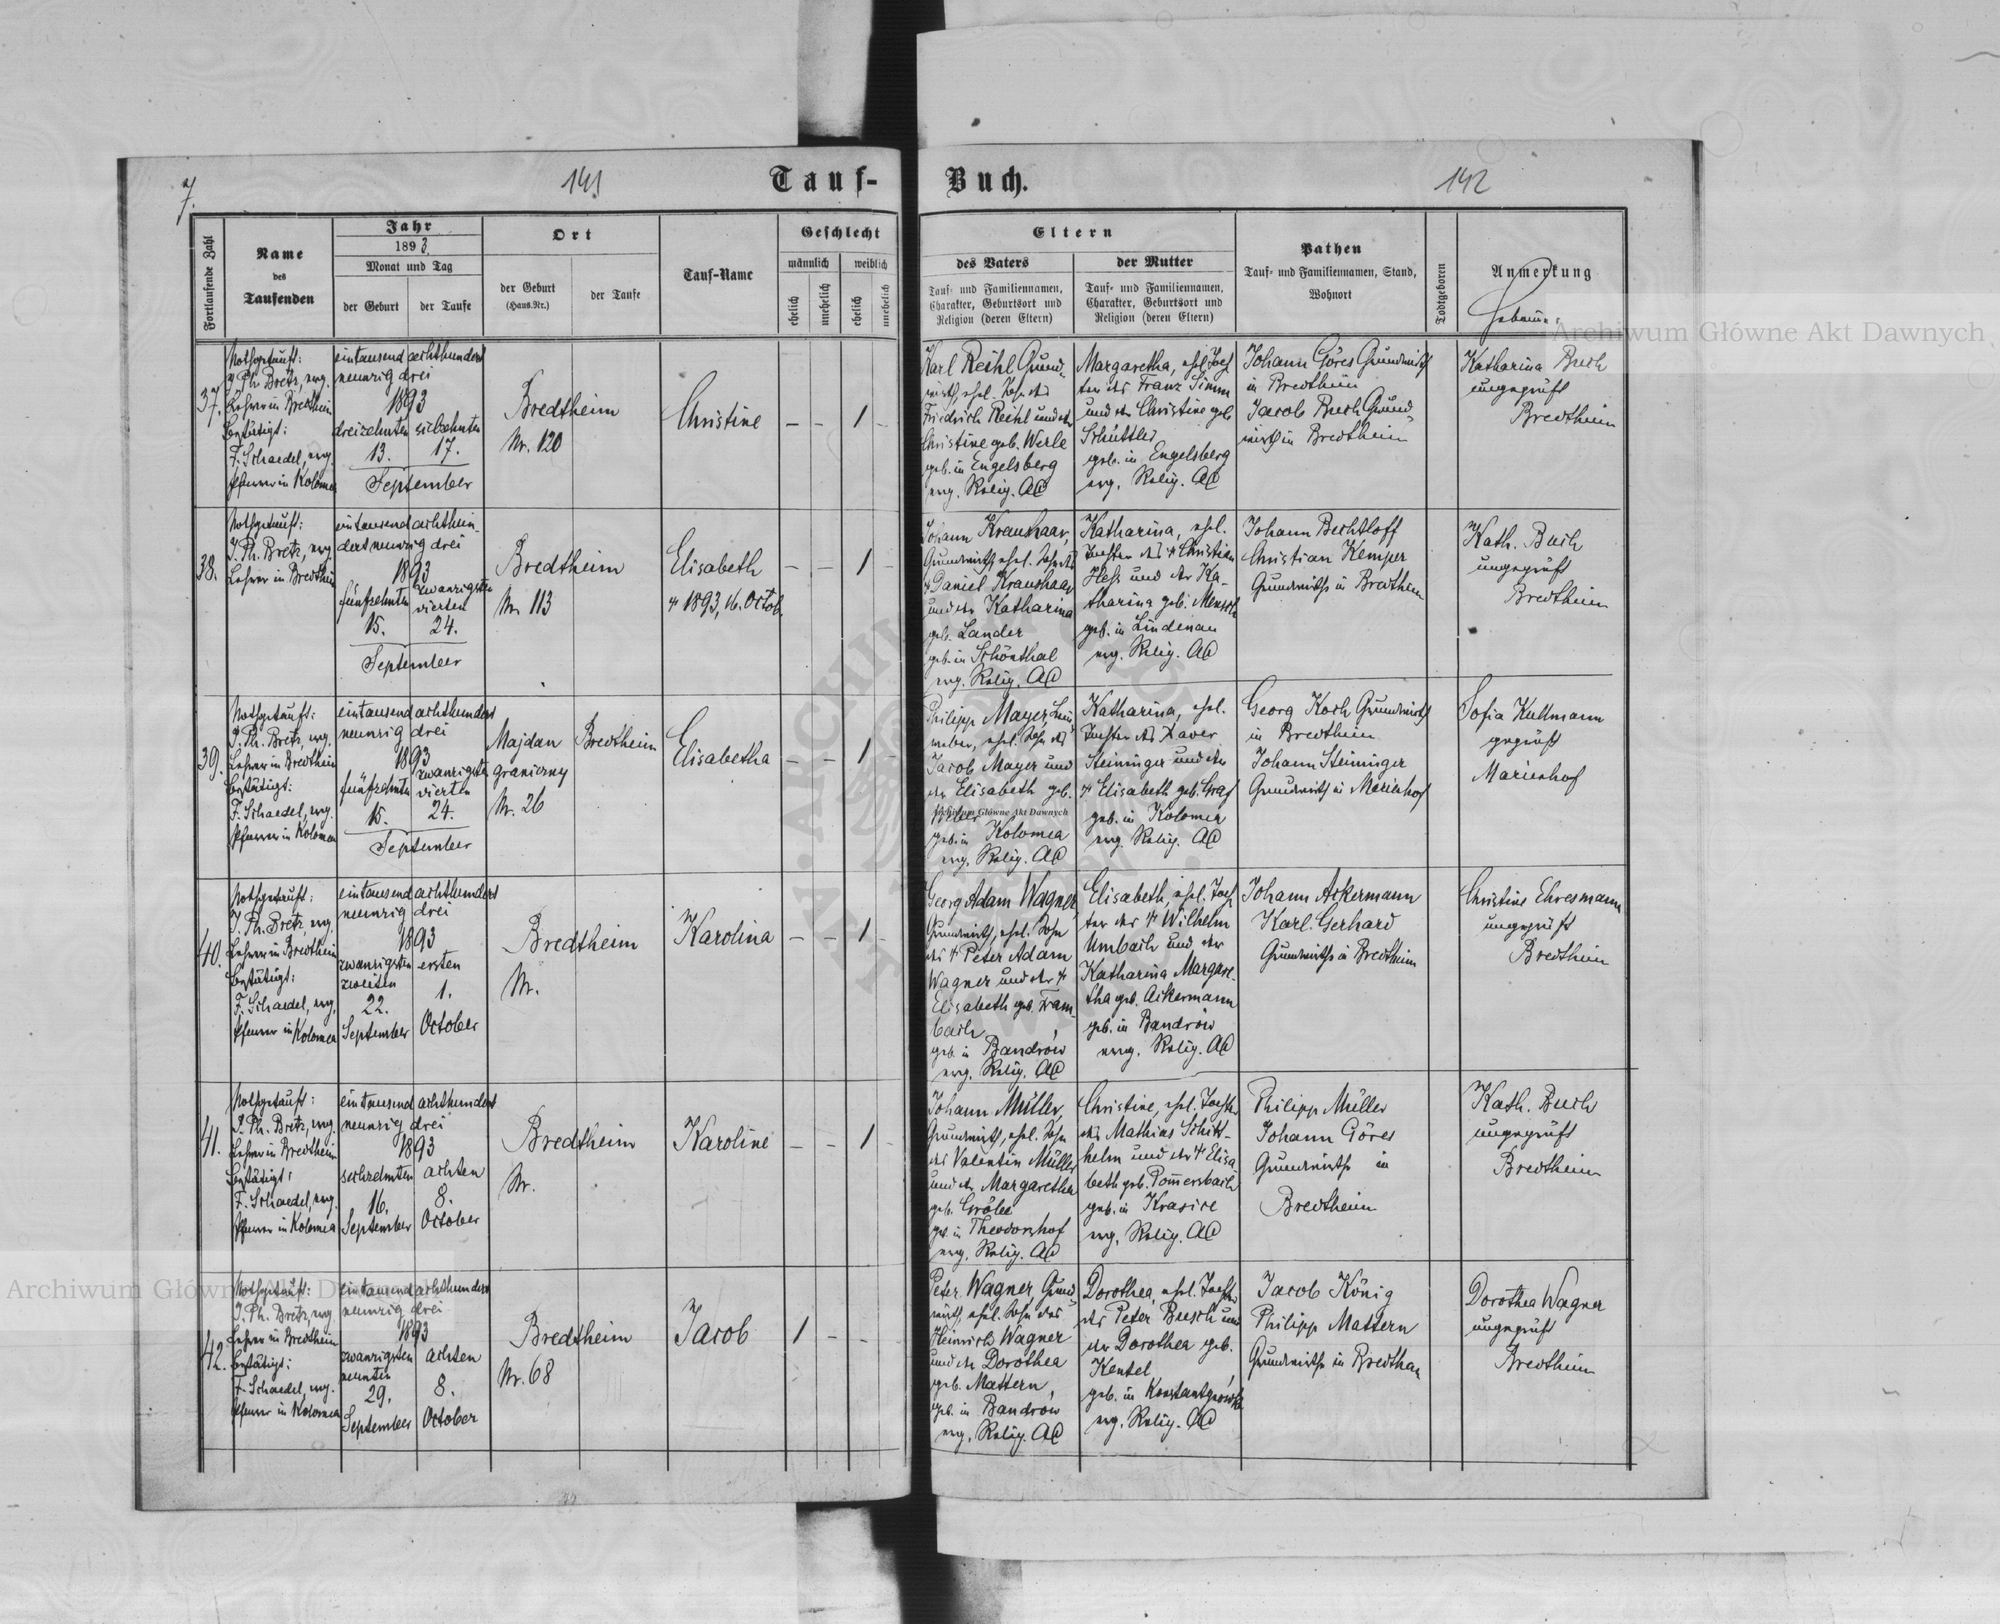 7.
141
Tauf-
Buch.
142
Fortlaufende Zahl
Name
des
Taufenden
Jahr
1893
Monat und Tag
der Geburt
der Taufe
Ort
der Geburt
(Haus-Nr.)
der Taufe
Tauf-Name
Geschlecht
männlich
weiblich
ehelich
unehelich
ehelich
unehelich
Eltern
des Vaters
Tauf- und Familiennamen,
Charakter, Geburtsort und
Religion (deren Eltern)
der Mutter
Tauf- und Familiennamen,
Charakter, Geburtsort und
Religion (deren Eltern)
Pathen
Tauf- und Familiennamen, Stand,
Wohnort
Todtgeboren
Anmerkung
37.
Nothgetauft:
J. Ph. Bretz, evg.
Lehrer in Bredtheim
bestätigt:
F. Schaedel, evg.
Pfarrer in Kolomea
eintausend achthundert
neunzig drei
1893
dreizehnten siebzehnten
13. 17.
September
Bredtheim
Nr. 120
Christine
– – 1 –
Karl Reihl Grund-
wirth, ehel. Sohn des
Friedrich Reihl und der
Christine geb. Werle
geb. in Engelsberg
evg. Relig. AC
Margaretha, ehel. Toch
ter des Franz Simm
und der Christine geb.
Schüttler
geb. in Engelsberg
evg. Relig. AC
Johann Göres Grundwirth
in Bredtheim
Jacob Buch Grund-
wirth in Bredtheim
Katharina Buch
ungeprüft
Bredtheim
38.
Nothgetauft:
J. Ph. Bretz, evg.
Lehrer in Bredtheim
eintausend achthun-
dert neunzig drei
1893
fünfzehnten zwanzigsten
vierten
15. 24.
September
Bredtheim
Nr. 113
Elisabeth
† 1893, 16. Octob.
– – 1 –
Johann Kraushaar,
Grundwirth, ehel. Sohn des
† Daniel Kraushaar
und der Katharina
geb. Lander
geb. in Schönthal
evg. Relig. AC
Katharina, ehel.
Tochter des † Christian
Hess und der Ka-
tharina geb.
geb. in Lindenau
evg. Relig. AC
Johann Bechtloff
Christian Kemper
Grundwirthe in Bredtheim
Kath. Buch
ungeprüft
Bredtheim
39.
Nothgetauft:
J. Ph. Bretz, evg.
Lehrer in Bredtheim
bestätigt:
F. Schaedel, evg.
Pfarrer in Kolomea
eintausend achthundert
neunzig drei
1893
fünfzehnten zwanzigsten
vierten
15. 24.
September
Majdan
graniczny
Nr. 26
Bredtheim
Elisabetha
– – 1 –
Philipp Mayer, Lein
weber, ehel. Sohn des
Jacob Mayer und
der Elisabeth geb.
geb. in Kolomea
evg. Relig. AC
Katharina, ehel.
Tochter des Xaver
Steininger und der
† Elisabeth geb. Graf
geb. in Kolomea
evg. Relig. AC
Georg Koch Grundwirth
in Bredtheim
Johann Steininger
Grundwirth in Marienhof
Sofia Kullmann
geprüft
Marienhof
40.
Nothgetauft:
J. Ph. Bretz, evg.
Lehrer in Bredtheim
bestätigt:
F. Schaedel, evg.
Pfarrer in Kolomea
eintausend achthundert
neunzig drei
1893
zwanzigsten ersten
zweiten
22. 1.
September October
Bredtheim
Nr.
Karolina
– – 1 –
Georg Adam Wagner,
Grundwirth, ehel. Sohn
des † Peter Adam
Wagner und der †
Elisabeth geb. Fram-
bach
geb. in Bandrów
evg. Relig. AC
Elisabeth, ehel. Toch
ter des † Wilhelm
Umbach und der
Katharina Margare-
tha geb. Ackermann
geb. in Bandrów
evg. Relig. AC
Johann Ackermann
Karl Gerhard
Grundwirthe in Bredtheim
Christine Ehresmann
ungeprüft
Bredtheim
41.
Nothgetauft:
J. Ph. Bretz, evg.
Lehrer in Bredtheim
bestätigt:
F. Schaedel, evg.
Pfarrer in Kolomea
eintausend achthundert
neunzig drei
1893
sechzehnten achten
16. 8.
September October
Bredtheim
Nr.
Karoline
– – 1 –
Johann Müller,
Grundwirth, ehel. Sohn
des Valentin Müller
und der Margaretha
geb.
geb. in Theodorshof
evg. Relig. AC
Christine, ehel. Tochter
des Mathias Schitt-
helm und der † Elisa
beth geb. Pom̄ersbach
geb. in Krasice
evg. Relig. AC
Philipp Müller
Johann Göres
Grundwirthe in
Bredtheim
Kath. Buch
ungeprüft
Bredtheim
42.
Nothgetauft:
J. Ph. Bretz, evg.
Lehrer in Bredtheim
bestätigt:
F. Schaedel, evg.
Pfarrer in Kolomea
eintausend achthundert
neunzig drei
1893
zwanzigsten achten
neunten
29. 8.
September October
Bredtheim
Nr. 68
Jacob
1 – – –
Peter Wagner Grund-
wirth, ehel. Sohn des
Heinrich Wagner
und der Dorothea
geb. Mattern,
geb. in Bandrów
evg. Relig. AC
Dorothea, ehel. Tochter
des Peter Busch und
der Dorothea geb.
Kentel,
geb. in Konstantynówka
evg. Relig. AC
Jacob König
Philipp Mattern
Grundwirthe in Bredtheim
Dorothea Wagner
ungeprüft
Bredtheim
Archiwum Główne Akt Dawnych
Archiwum Główne Akt Dawnych
Archiwum Główne Akt Dawnych